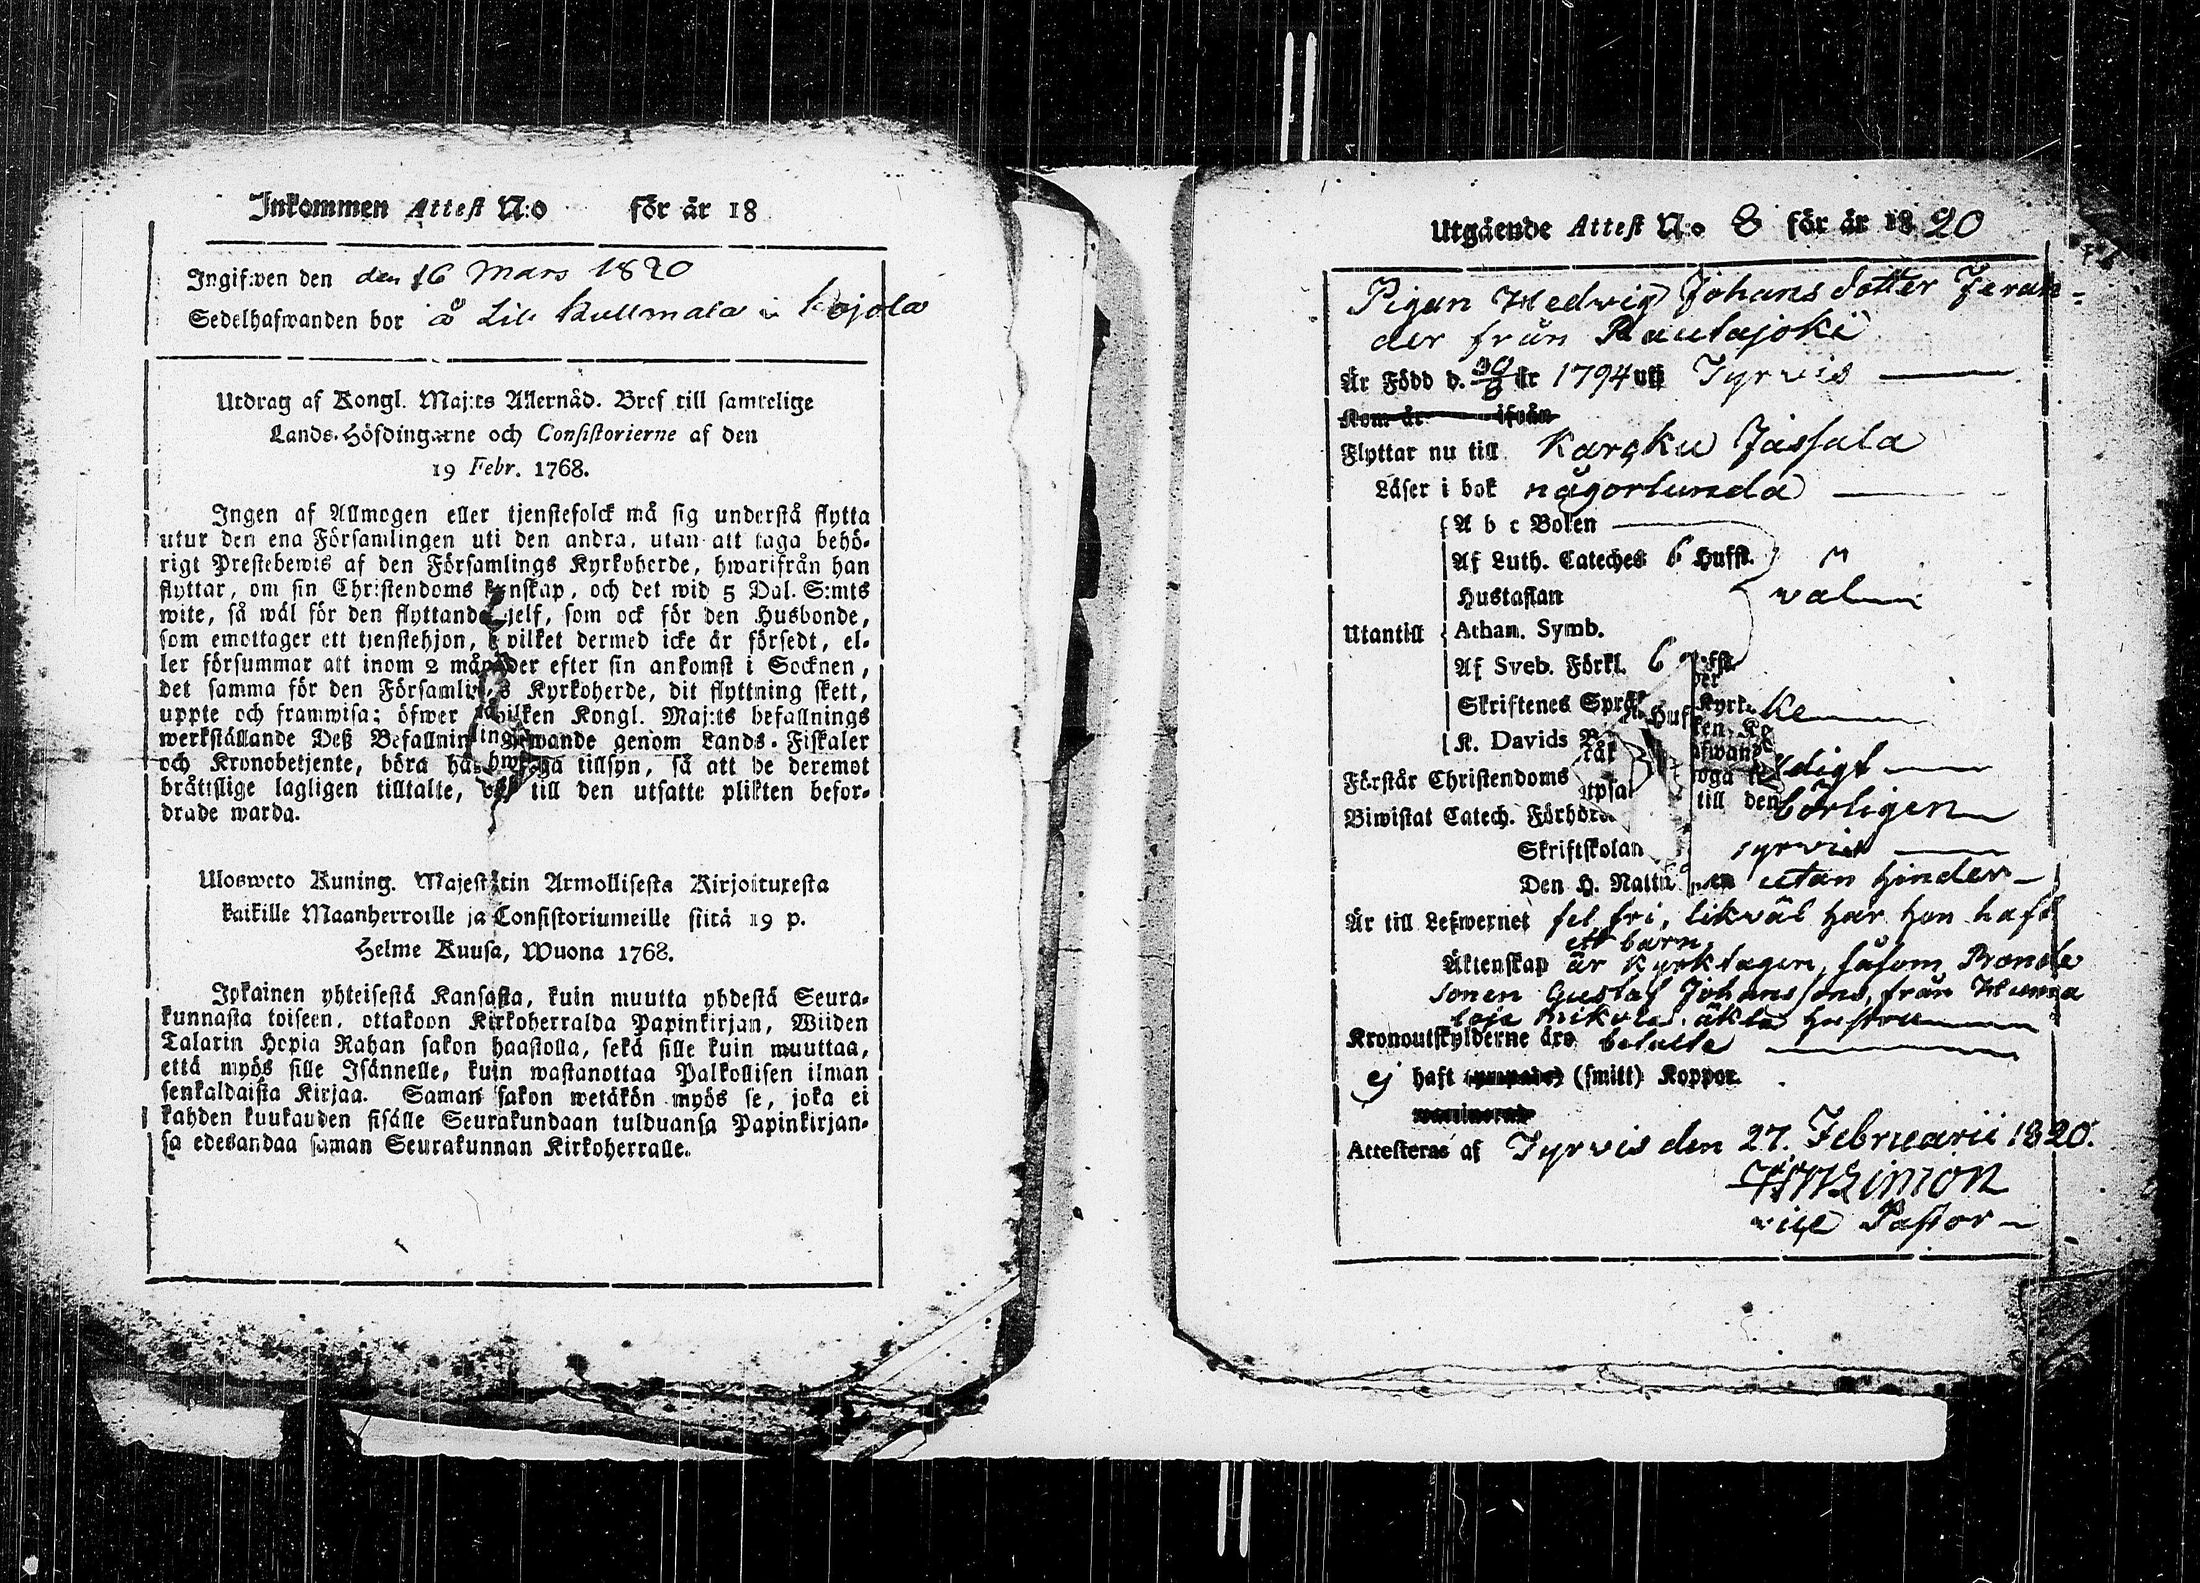 Inkommen Attest N:o för år 18
Ingifwen den den 16 Mars 1820
Sedelhafwanden bor å Lill Kullmala i Kojola
Utdrag af Kongl. Maj:ts Allernåd. Bref till samtelige
Lands-Höfdingarne och Consistorierne af den
19 Febr. 1768.
Ingen af Allmogen eller tjenstefolck må sig understå flytta
utur den ena Församlingen uti den andra, utan att taga behö-
rigt Prestebewis af den Församlings Kyrkoherde, hwarifrån han
flyttar, om sin Christendoms kunskap, och det wid 5 Dal. S:mts
wite, så wäl för den flyttande sjelf, som ock för den Husbonde,
som emottager ett tjenstehjon, hvilket dermed icke är försedt, el-
ler försummar att inom 2 månader efter sin ankomst i Socknen,
det samma för den Församlings Kyrkoherde, dit flyttning skett,
uppte och framwisa; öfwer hvilken Kongl. Maj:ts befallnings
werkställande Deß Befallningshafwande genom Lands-Fiskaler
och Kronobetjente, böra hafwa noga tillsyn, så att de deremot
bråttslige lagligen tilltalte, och till den utsatte plikten befor-
drade warda.
Ulosweto Kuning. Majestätin Armollisesta Kirjoituxesta
kaikille Maanherroille ja Consistoriumeille siitä 19 p.
Helme Kuusa, Wuona 1768.
Jokainen yhteisestä Kansasta, kuin muutta yhdestä Seura-
kunnasta toiseen, ottakoon Kirkoherralda Papinkirjan, Wiiden
Talarin Hopia Rahan sakon haastolla, sekä sille kuin muuttaa,
että myös sille Isännelle, kuin wastanottaa Palkollisen ilman
senkaldaista Kirjaa. Saman sakon wetäkön myös se, joka ei
kahden kuukauden sisälle Seurakundaan tulduansa Papinkirjan-
sa edesandaa saman Seurakunnan Kirkoherralle.
Utgående Attest N:o 8 för år 1820
Pigan Hedvig Johans dotter Feran-
der från Rautajoki
Är Född d. 30/8 år 1794 uti Tyrvis
Kom år ifrån
Flyttar nu till Karcku Jassala
Läser i bok någorlunda
A b c Boken
Af Luth. Cateches 6 Hufst.
Hustaflan väl
Utantill Athan. Symb.
Af Sveb. Förkl. 6
Skriftenes Språk
K. Davids
Förstår Christendoms
Biwistat Catech. Förhören börligen
Skriftskolan Tyrvis
Den H. Nattw. utan hinder
Är till Lefwernet fel fri, likväl har hon haft
ett barn,
Äktenskap är Kyrktagen, såsom Bonde
sonen Gustaf Johanssons, från Huma
loja Mikola äkta hustru
Kronoutskylderne äro betalte
ej haft (smitt) Koppor.
Attesteras af Tyrvis den 27. Februarii 1820.
vice Pastor